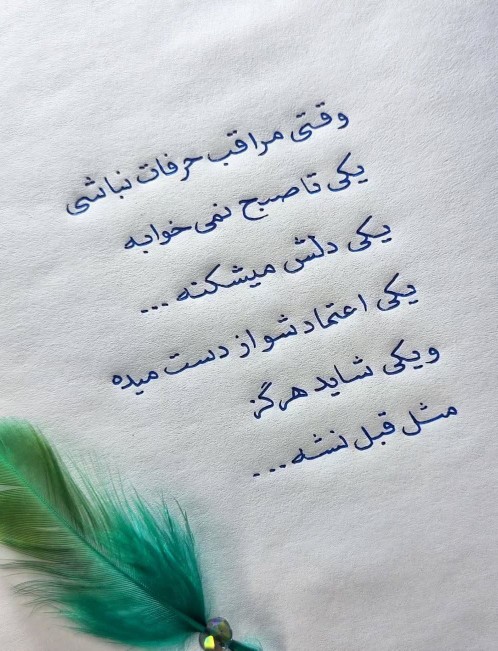 وقتی مراقب حرفات نباشی
یکی تا صبح نمی خوابه
یکی دلش میشکنه ...
یکی اعتماد شو از دست میده
و یکی شاید هرگز
مثل قبل نشه ...